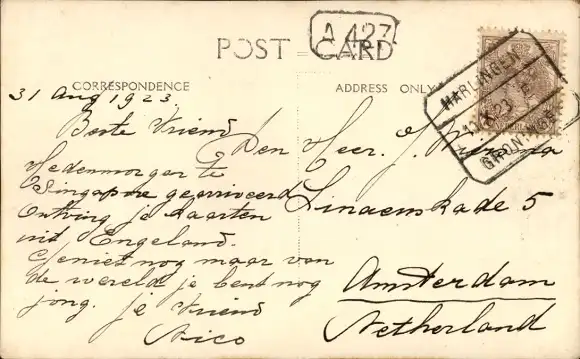 A 427
POST CARD
CORRESPONDENCE
ADDRESS ONLY
HARLINGEN
X 23
GRONINGEN
31 Aug 1923.
Beste Vriend
Hedenmorgen te
Singapore gearriveerd
Ontving je kaarten
uit Engeland.
Geniet nog maar van
de wereld je bent nog
jong. je Vriend
Nico
Den Heer. J.
Linaeuskade 5
Amsterdam
Netherland